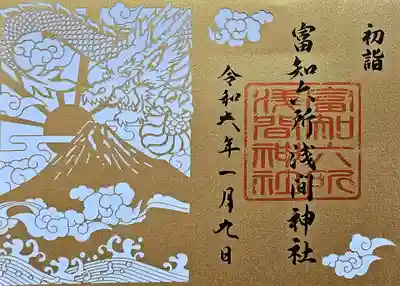 初詣
富知六所浅间神社
令和六年一月九日
富知六所
浅間神社